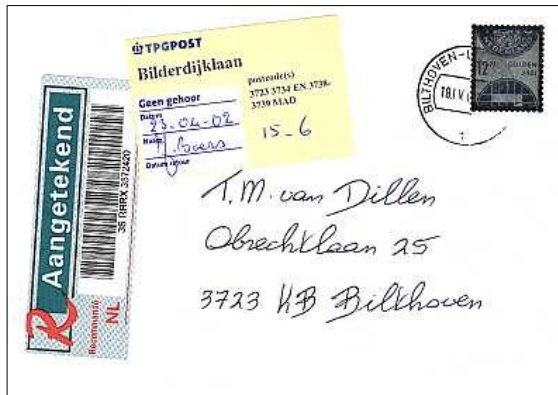 TPGPOST
Bilderdijklaan
postcode(s)
3723 3734 EN 3738-
3739 MAD
Geen gehoor
Datum
23-04-02
Naam
Boers
Datum retour
15-6
BILTHOVEN-
18.IV
1
12
GULDEN
2001
R Aangetekend
Recommandé
NL
3S RRRX 3372420
T.M. van Dillen
Obrechtlaan 25
3723 KB Bilthoven